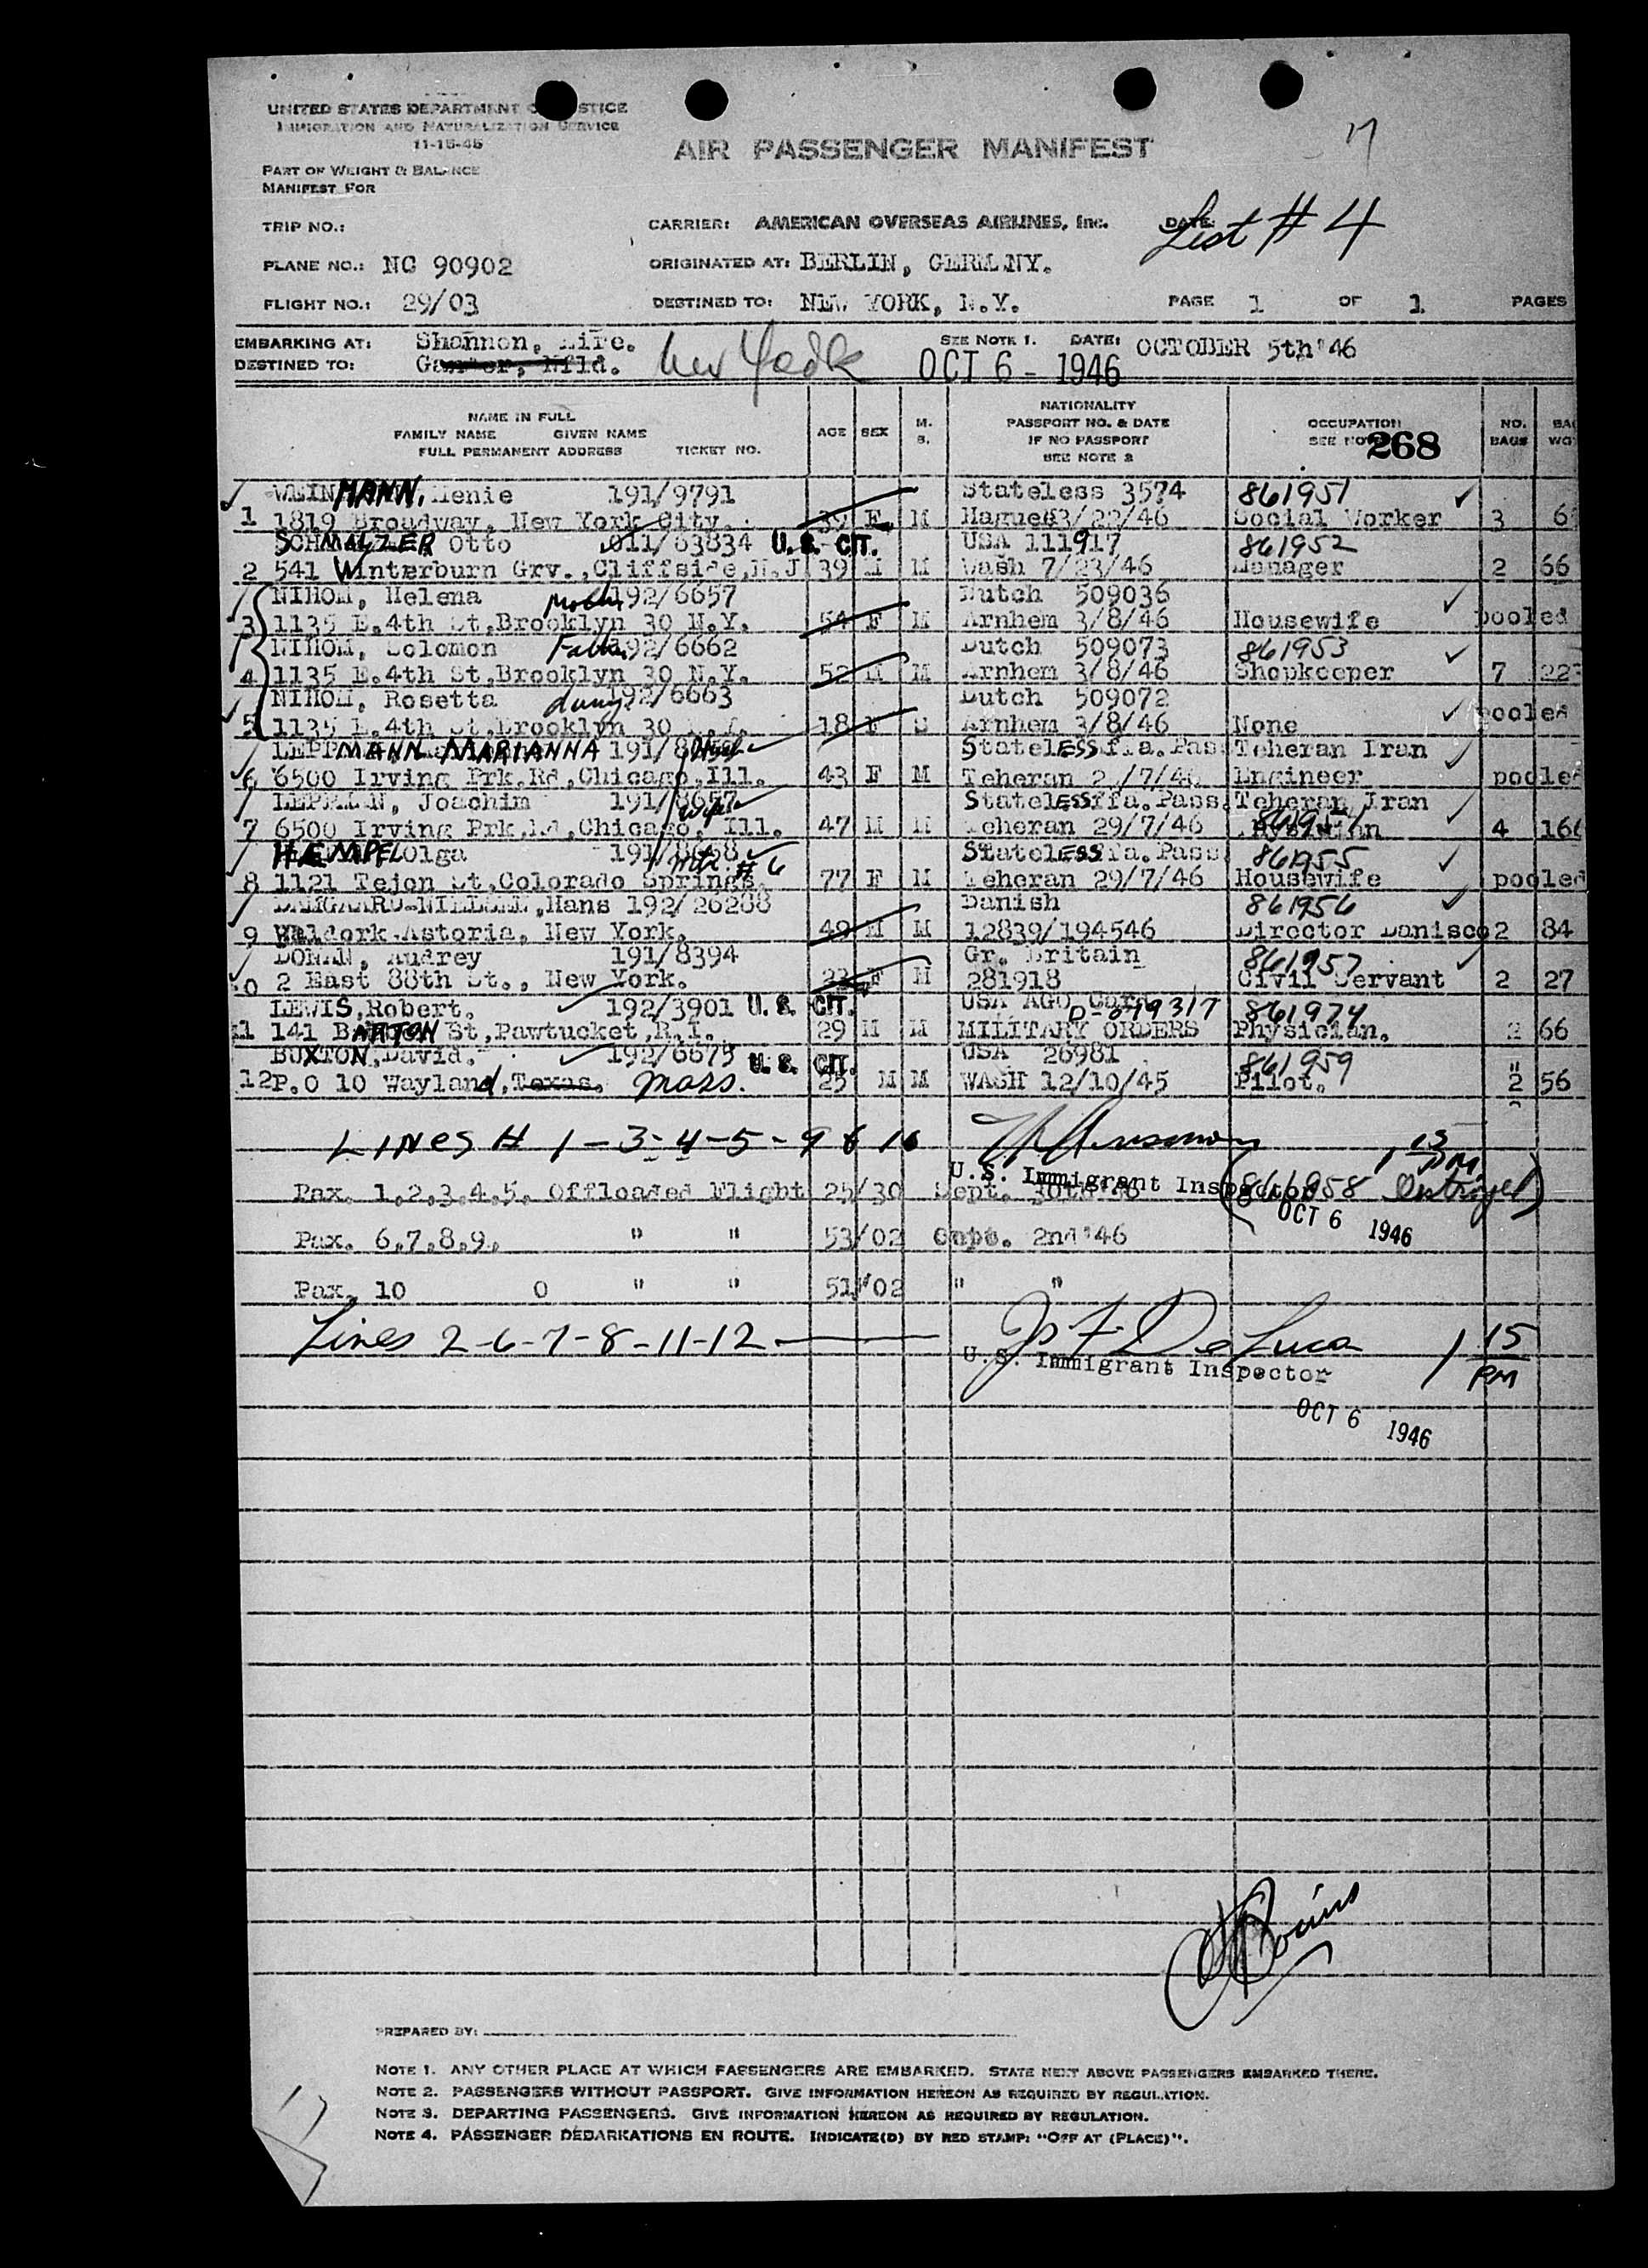 UNITED STATES DEPARTMENT STICE
IMMIGRATION AND NATURALIZATION SERVICE
11-15-45
AIR PASSENGER MANIFEST
17
PART OF WEIGHT & BALANCE
MANIFEST FOR
TRIP NO.: CARRIER: AMERICAN OVERSEAS AIRLINES, Inc. DATE: List # 4
PLANE NO.: NC 90902 ORIGINATED AT: BERLIN, GERMANY.
FLIGHT NO.: 29/03 DESTINED TO: NEW YORK, N.Y. PAGE 1 OF 1 PAGES
EMBARKING AT: Shannon, Eire. SEE NOTE 1. DATE: OCTOBER 5th'46
DESTINED TO: Gander, Nfld. New York OCT 6 - 1946
NAME IN FULL
FAMILY NAME GIVEN NAME
FULL PERMANENT ADDRESS TICKET NO.
AGE SEX M. S.
NATIONALITY
PASSPORT NO. & DATE
IF NO PASSPORT
SEE NOTE 2
OCCUPATION
SEE NOTE 268
NO. BAGS
WINMANN, Henie 191/9791 Stateless 3574 861951
1 1819 Broadway, New York City. 39 F M Hague 3/22/46 Social Worker 3
SCHMALZER Otto 011/63834 U.S. CIT. USA 111917 861952
2 541 Winterburn Grv.,Cliffside,N.J 39 M M Wash 7/23/46 Manager 2 66
NIHOM, Helena 192/6657 Dutch 509036
3 1135 E.4th St,Brooklyn 30 N.Y. 54 F M Arnhem 3/8/46 Housewife pooled
NIHOM, Solomon Father 192/6662 Dutch 509073 861953
4 1135 E.4th St.Brooklyn 30 N.Y. 52 M M Arnhem 3/8/46 Shopkeeper 7
NIHOM, Rosetta 192/6663 Dutch 509072
5 1135 E.4th St.Brooklyn 30 N.Y. 18 F S Arnhem 3/8/46 None pooled
LEPPMANN MARIANNA 191/ StatelESS ffa.Pas Teheran Iran
6 6500 Irving Prk.Rd,Chicago,Ill. 43 F M Teheran Engineer pooled
LEPPMANN, Joachim 191/8657 wife StatelESSffa.Pass. Teheran Iran
7 6500 Irving Prk.Rd,Chicago, Ill. 47 M M Teheran 29/7/46 4
HEMPEL Olga 191/8658 # 6 StatelESSfa.Pass. 861955
8 1121 Tejon St,Colorado Springs. 77 F M Teheran 29/7/46 Housewife pooled
DAMGAARD-NIELSEN,Hans 192/26288 Danish 861956
9 Waldork-Astoria, New York. 49 M M 12839/194546 Director Danisco 2 84
Audrey 191/8394 Gr. Britain 861957
0 2 East 88th St., New York. F M 281918 Civil Servant 2 27
LEWIS,Robert. 192/3901 U.S. CIT. USA AGO Card D-699317 861974
11 141 St,Pawtucket,R.I. 29 M M MILITARY ORDERS Physician. 2 66
BUXTON,David. 192/6675 U.S. CIT. USA 26981 861959
12 P.O 10 Wayland,Texas. Mass. 25 M M WASH 12/10/45 Pilot. 2 56
LINES # 1-3-4-5-9 & 10 1 15 PM
U.S. Immigrant Inspector
Pax. 1,2,3,4,5, Offloaded Flight 25/30 Sept. 30th'46 (861958 Destroyed)
OCT 6 1946
Pax. 6,7,8,9, " " 53/02 2nd'46
Pax. 10 0 " " 51/02 " "
Lines 2-6-7-8-11-12 J. F. DeLuca 1 15 PM
U.S. Immigrant Inspector
OCT 6 1946
PREPARED BY:
NOTE 1. ANY OTHER PLACE AT WHICH PASSENGERS ARE EMBARKED. STATE NEXT ABOVE PASSENGERS EMBARKED THERE.
NOTE 2. PASSENGERS WITHOUT PASSPORT. GIVE INFORMATION HEREON AS REQUIRED BY REGULATION.
NOTE 3. DEPARTING PASSENGERS. GIVE INFORMATION HEREON AS REQUIRED BY REGULATION.
NOTE 4. PASSENGER DEBARKATIONS EN ROUTE. INDICATE(D) BY RED STAMP: "OFF AT (PLACE)".